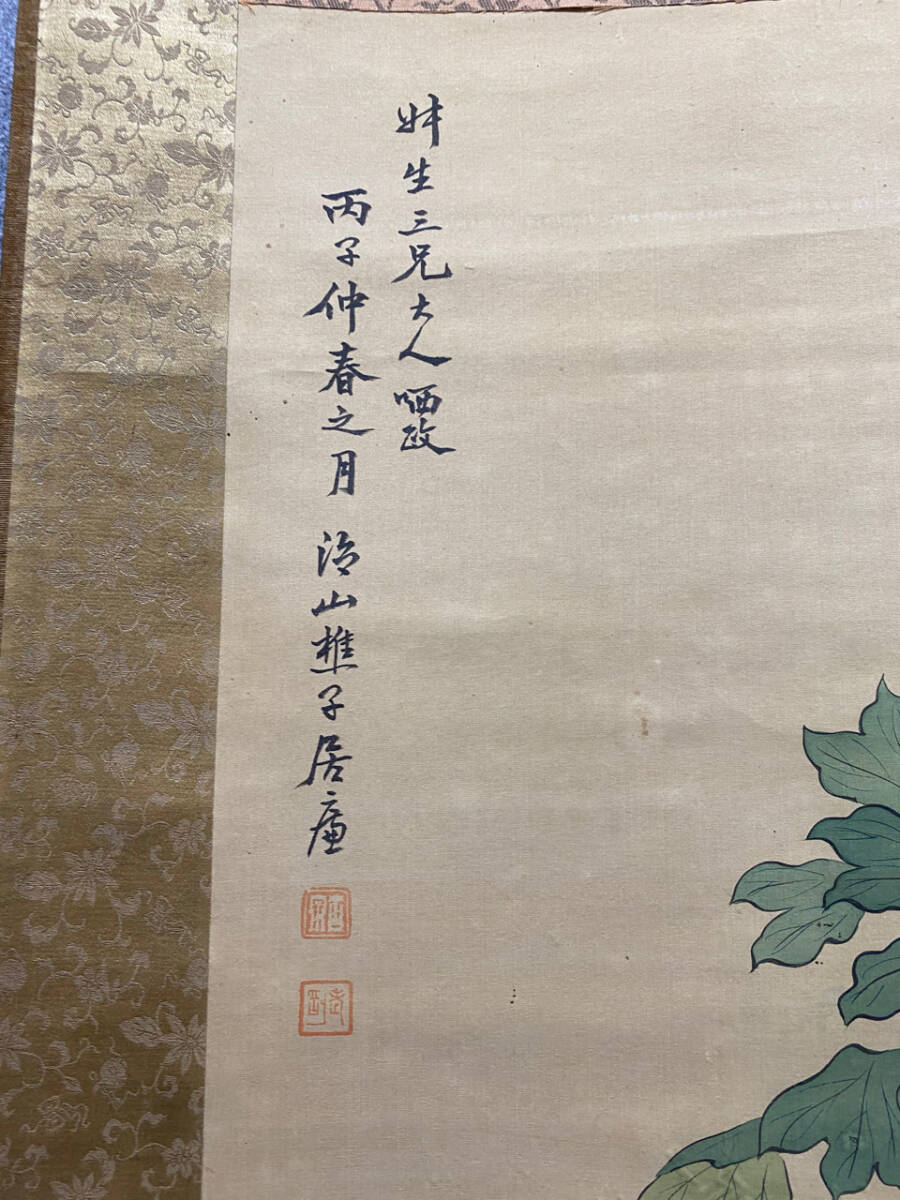 生三兄大人哂政
丙子仲春之月 隔山樵子居廉